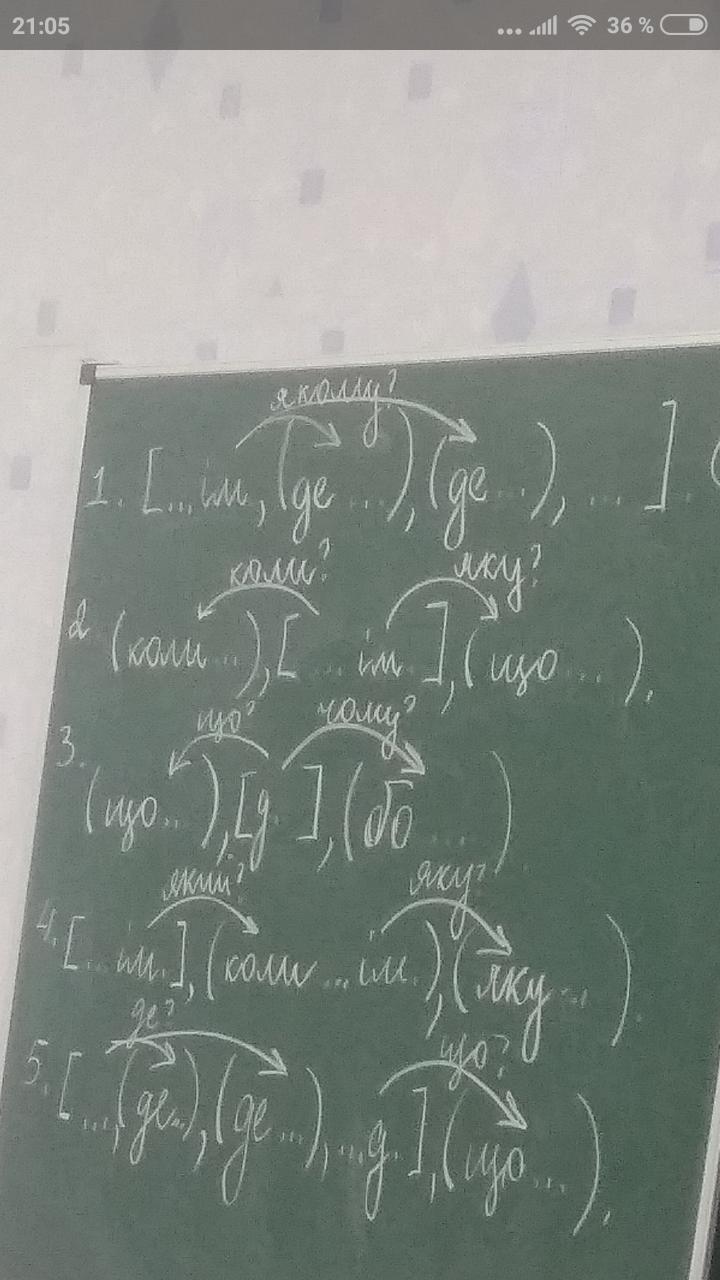 21:05 ... 36 %
якому?
1. [... ім, (де ...), (де ...), ... ]. (
коли? яку?
2 (коли ...), [ ... ім. ], (що ... ).
що? чому?
3. (що ..), [д. ], (бо ... )
який? яку?
4. [.. ім.], (коли ... ім.), (яку ... ).
де? що?
5. [ ..., (де ..), (де ...), ... д. ], (що ... ).